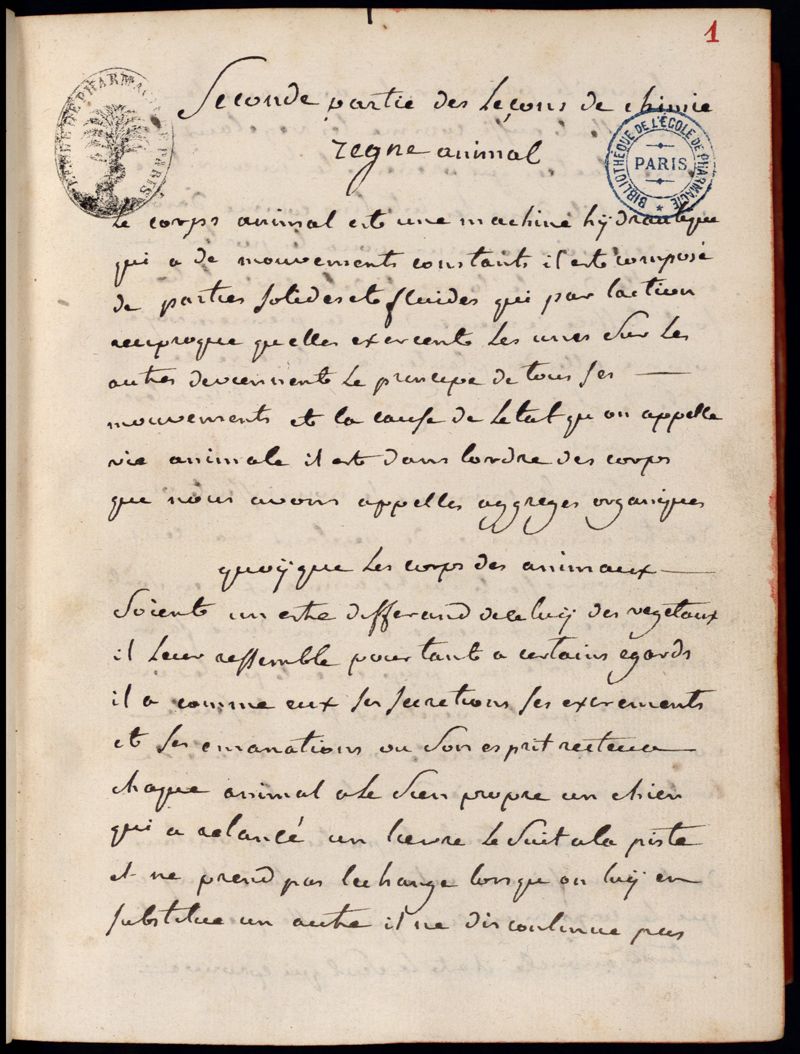 1
Seconde partie des Leçons de chimie
regne animal
BIBLIOTHÈQUE DE L'ÉCOLE DE PHARMACIE
PARIS
Le corps animal est une machine hÿdraulique
qui a de mouvements constants il est composé
de parties solides et fluides qui par laction
reciproque quelles exercent Les unes Sur Les
autres deviennent Le principe de tous ses —
mouvements et la cause de Letat qu on appelle
vie animale il est dans lordre des corps
que nous avons appelles aggreges organiques
quoÿque Les corps des animaux —
Soient un estre differand de celuÿ des vegetaux
il leur ressemble pourtant a certains egards
il a comme eux ses secretions ses excrements
et ses emanations ou Son esprit recteur
chaque animal a Le Sien propre un chien
qui a relancé un lievre Le Suit a la piste
et ne prend pas lechange lorsqu on luÿ en
substitue un autre il ne discontinue pas